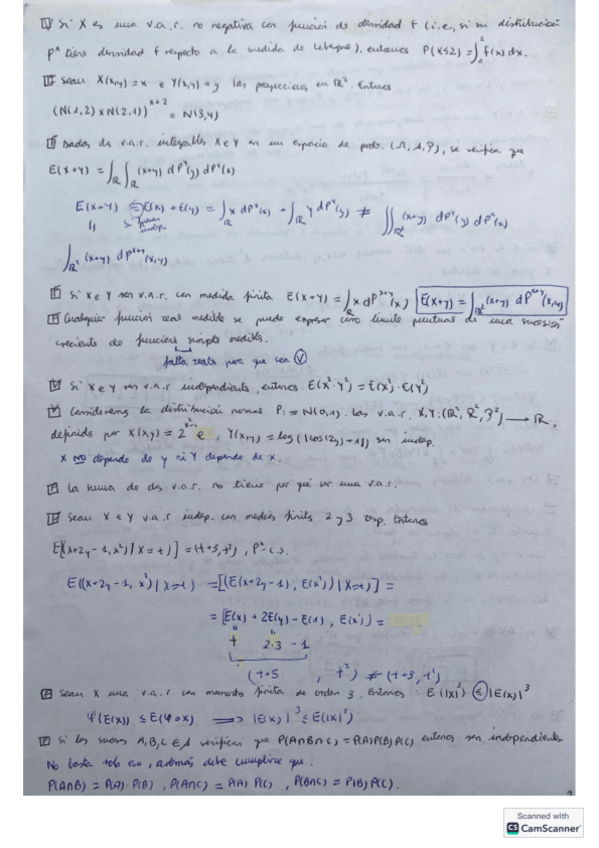 V Si X es una v.a.r. no negativa con función de densidad f (i.e., si su distribución
Pˣ tiene densidad f respecto a la medida de Lebesgue), entonces P(X≤2) = ∫₀² f(x)dx.
Sean X(x,y)=x e Y(x,y)=y las proyecciones en ℝ². Entonces
(N(1,2) x N(2,1))ˣ⁺² = N(3,4)
Dadas dos v.a.r. integrables X e Y en un espacio de prob. (Ω, A, P), se verifica que
E(X+Y) = ∫ℝ ∫ℝ (x+y) dPʸ(y) dPˣ(x)
E(X+Y) = E(X) + E(Y) = ∫ℝ x dPˣ(x) + ∫ℝ y dPʸ(y) ≠ ∬ℝ² (x+y) dPʸ(y) dPˣ(x)
si fueran indep.
∫ℝ² (x+y) dPˣ⁺ʸ(x,y)
Si X e Y son v.a.r. con media finita E(X+Y) = ∫ℝ x dPˣ⁺ʸ(x) E(X+Y) = ∫ℝ² (x+y) dPˣ⁺ʸ(x,y)
F Cualquier función real medible se puede expresar como límite puntual de una sucesión
creciente de funciones simples medibles.
falta reales para que sea V
V Si X e Y son v.a.r independientes, entonces E(X²·Y²) = E(X²)·E(Y²)
V Consideremos la distribución normal P:=N(0,1). Las v.a.r. X,Y:(ℝ², R², P²) → ℝ,
definidas por X(x,y) = 2 e, Y(x,y) = log(|cos(2y)+1|) son indep.
X NO depende de y ni Y depende de x.
F La suma de dos v.a.r. no tiene por qué ser una v.a.r.
F Sean X e Y v.a.r indep. con medias finitas 2 y 3 resp. Entonces
E[(X+2Y-1, X²)|X=t)] = (t+5, t²), Pˣ-c.s.
E((X+2Y-1, X²)|X=t) = [(E(X+2Y-1), E(X²))|X=t)] =
= [E(X) + 2E(Y) - E(1), E(X²)) =
t 2·3 - 1
(t+5 , t²) ≠ (t+3, t²)
F Sean X una v.a.r con momento finito de orden 3. Entonces: E(|X|³) ≤ |E(X)|³
φ(E(X)) ≤ E(φoX) ⟹ |E(X)|³ ≤ E(|X|³)
F Si los sucesos A,B,C ∈ A verifican que P(A∩B∩C) = P(A)P(B)P(C) entonces son independientes
No basta solo eso, además debe cumplirse que:
P(A∩B) = P(A)·P(B), P(A∩C) = P(A)·P(C), P(B∩C) = P(B)·P(C).
Scanned with
CS CamScanner